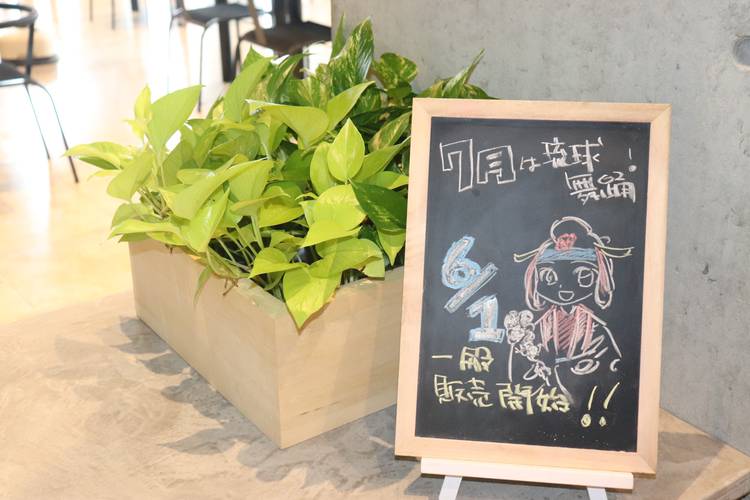 7月は琉球
舞踊!
6/1
一服
販売開始!!